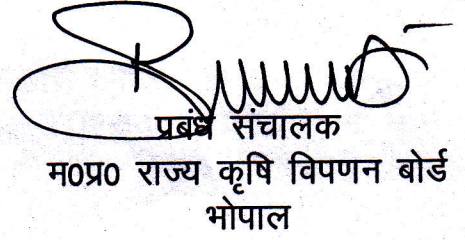 प्रबंध संचालक
म०प्र० राज्य कृषि विपणन बोर्ड
भोपाल